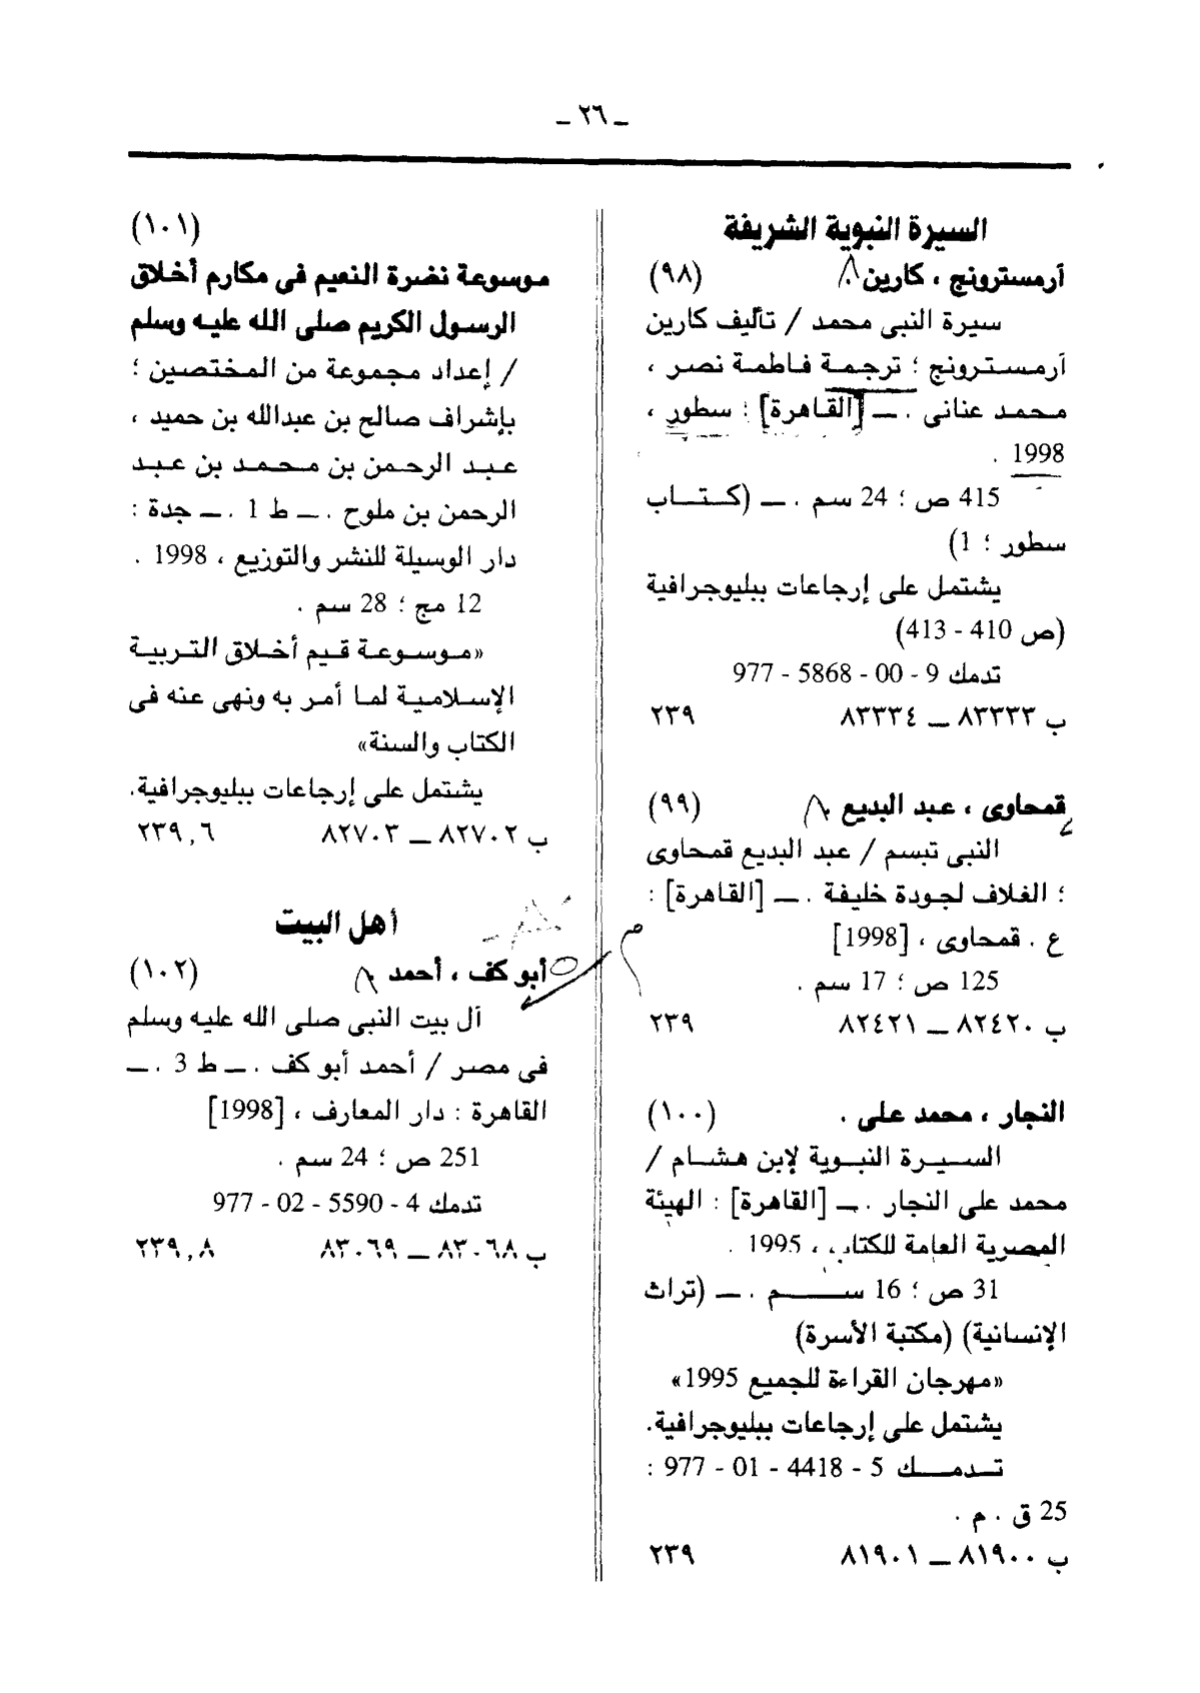 ـ ٢٦ ـ
السيرة النبوية الشريفة
آرمسترونج ، كارين . (٩٨)
سيرة النبى محمد / تأليف كارين
آرمسترونج ؛ ترجمة فاطمة نصر ،
محمد عنانى . ـ [القاهرة] : سطور ،
1998 .
415 ص ؛ 24 سم . ـ (كتاب
سطور ؛ 1)
يشتمل على إرجاعات ببليوجرافية
(ص 410 - 413)
تدمك 9 - 00 - 5868 - 977
ب ٨٣٣٣٣ ـ ٨٣٣٣٤ ٢٣٩
قمحاوى ، عبد البديع . (٩٩)
النبى تبسم / عبد البديع قمحاوى
؛ الغلاف لجودة خليفة . ـ [القاهرة] :
ع . قمحاوى ، [1998]
125 ص ؛ 17 سم .
ب ٨٢٤٢٠ ـ ٨٢٤٢١ ٢٣٩
النجار ، محمد على . (١٠٠)
السيرة النبوية لإبن هشام /
محمد على النجار . ـ [القاهرة] : الهيئة
المصرية العامة للكتاب ، 1995 .
31 ص ؛ 16 سم . ـ (تراث
الإنسانية) (مكتبة الأسرة)
«مهرجان القراءة للجميع 1995»
يشتمل على إرجاعات ببليوجرافية.
تدمك 5 - 4418 - 01 - 977 :
25 ق . م .
ب ٨١٩٠٠ ـ ٨١٩٠١ ٢٣٩
(١٠١)
موسوعة نضرة النعيم فى مكارم أخلاق
الرسول الكريم صلى الله عليه وسلم
/ إعداد مجموعة من المختصين ؛
بإشراف صالح بن عبدالله بن حميد ،
عبد الرحمن بن محمد بن عبد
الرحمن بن ملوح . ـ ط 1 . ـ جدة :
دار الوسيلة للنشر والتوزيع ، 1998 .
12 مج ؛ 28 سم .
«موسوعة قيم أخلاق التربية
الإسلامية لما أمر به ونهى عنه فى
الكتاب والسنة»
يشتمل على إرجاعات ببليوجرافية.
ب ٨٢٧٠٢ ـ ٨٢٧٠٣ ٢٣٩,٦
أهل البيت
أبو كف ، أحمد (١٠٢)
آل بيت النبى صلى الله عليه وسلم
فى مصر / أحمد أبو كف . ـ ط 3 . ـ
القاهرة : دار المعارف ، [1998]
251 ص ؛ 24 سم .
تدمك 4 - 5590 - 02 - 977
ب ٨٣٠٦٨ ـ ٨٣٠٦٩ ٢٣٩,٨